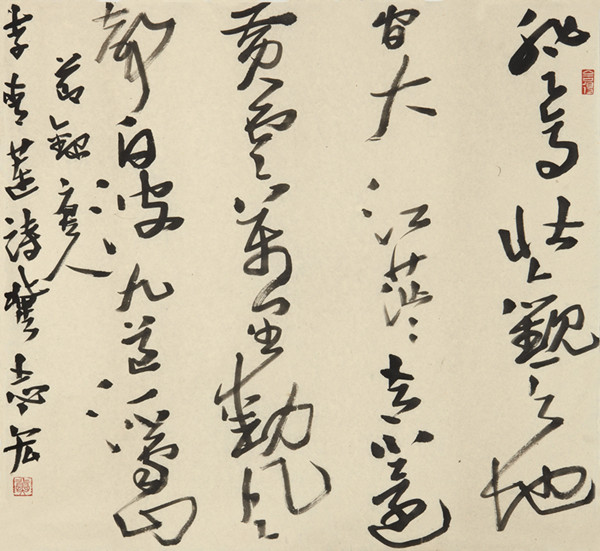 登高壯觀天地
間大江茫〻去不還
黃雲萬里動風
白波九道流雪山
節錄唐人
李青蓮詩 志宏